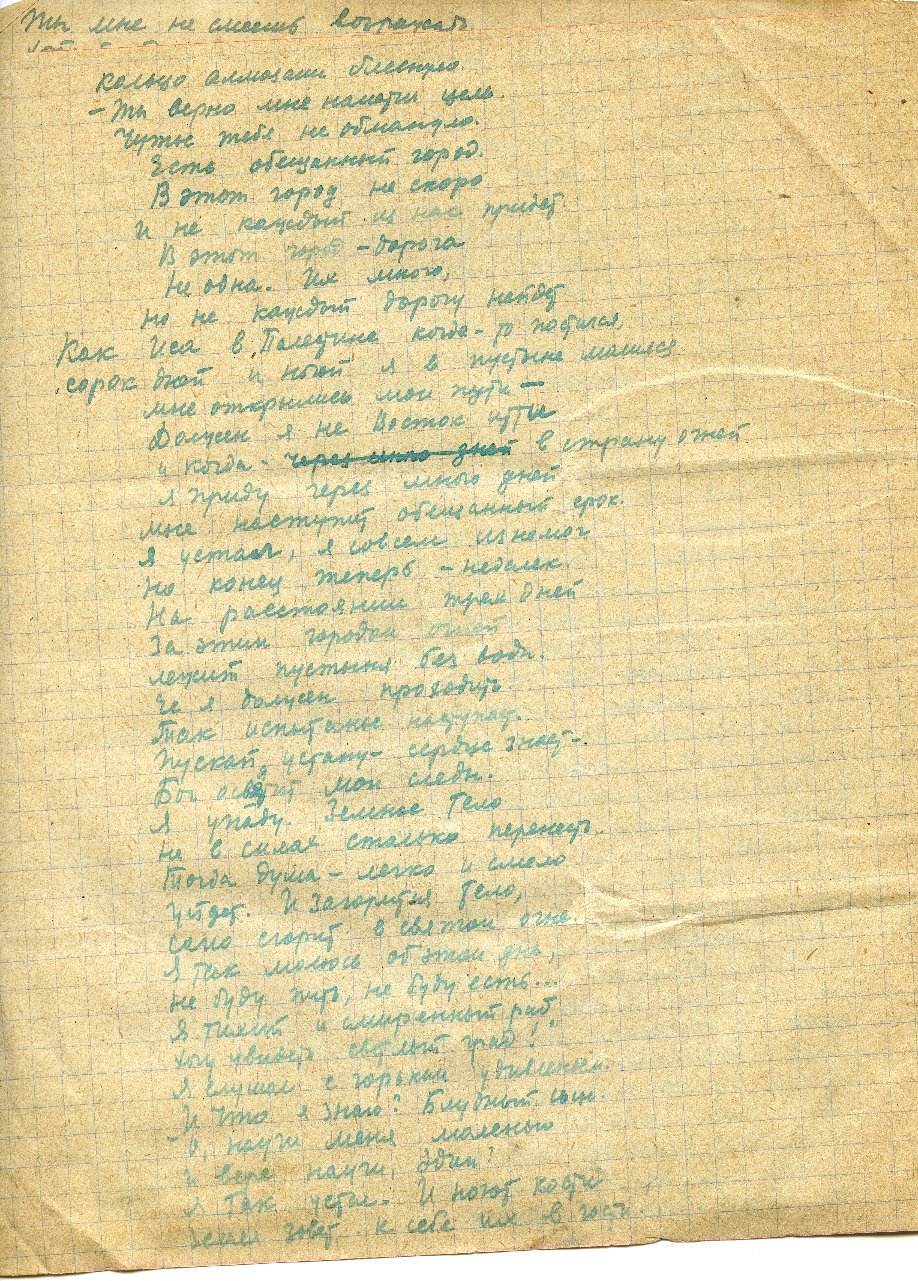 Ты мне не смеешь возражать
Кольцо алмазами блеснуло.
– Ты верно мне наметил цель
Чутье тебя не обмануло.
Есть обещанный город.
В этот город не скоро
И не каждый из нас придет
В этот город – дорога
Не одна. Их много,
Но не каждый дорогу найдет
Как Иса в Палестине когда-то постился
сорок дней и ночей я в пустыне молился
мне открылись мои пути —
Должен я на Восток идти
и когда – через много дней в страну огней
я приду через много дней
мне наступит обещанный срок.
Я устал, я совсем изнемог
Но конец теперь – недалек.
На расстоянии трех дней
За этим городом огней
лежит пустыня без воды.
Ее я должен проходить.
Так испытанье наступает.
Пускай, устану – сердце знает –
Бог осветит мои следы.
Я упаду. Земное тело
Не в силах столько перенесть.
Тогда душа – легко и смело
Уйдет. И загорится тело,
Само сгорит в святом огне.
Я так молюсь об этом дне,
Не буду пить, не буду есть...
Я тихий и смиренный раб
Хочу увидеть светлый град!
Я слушал с горьким удивленьем.
И что я знаю? Блудный сын.
– О, научи меня моленью
И вере научи, Эдин!
Я так устал. И ноют кости
Земля зовет к себе их в гости!